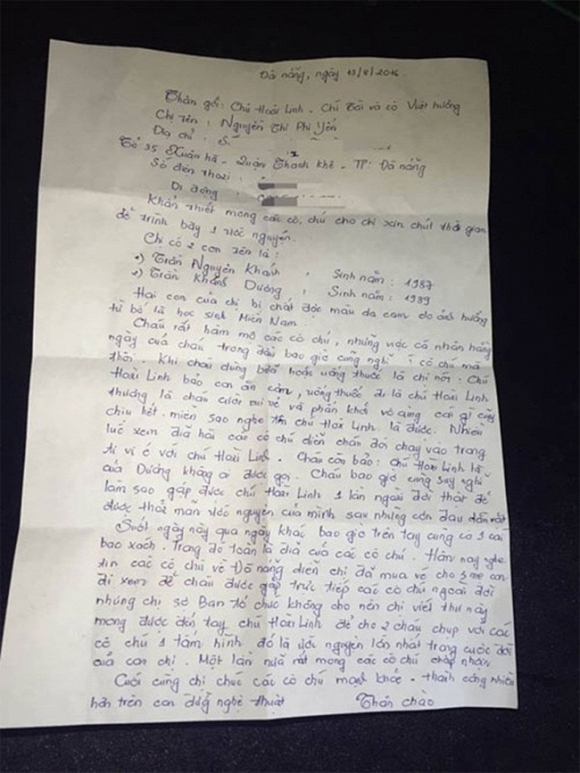 Đà nẵng, ngày 13/8/2016
Thân gởi: Chú Hoài Linh - Chú Tài và cô Việt Hương
Chị tên: Nguyễn Thị Phi Yến
Địa chỉ: S.
Tổ 35 Xuân hà - Quận Thanh Khê - TP: Đà nẵng
Số điện thoại:
Di động
Khẩn thiết mong các cô, chú cho chị xin chút thời gian
để trình bày 1 ước nguyện.
Chị có 2 con tên là:
1) Trần Nguyên Khánh, Sinh năm: 1987
2) Trần Khánh Dương, Sinh năm: 1989
Hai con của chị bị chất độc màu da cam do ảnh hưởng
từ bố là học sinh Miền Nam.
Cháu rất hâm mộ các cô chú, những việc cá nhân hàng
ngày của cháu trong đầu bao giờ cũng nghĩ tới cô chú mà
thôi. Khi cháu dùng bữa hoặc uống thuốc là chị nói: Chú
Hoài Linh bảo con ăn cơm, uống thuốc đi là chú Hoài Linh
thương là cháu cười vui vẻ và phấn khởi vô cùng cái gì cũng
chịu hết miễn sao nghe tên chú Hoài Linh là được. Nhiều
lúc xem đĩa hài các cô chú diễn chân đời chạy vào trong
ti vi ở với chú Hoài Linh. Cháu còn bảo: Chú Hoài Linh là
của Dương không ai được gọi. Cháu bao giờ cũng suy nghĩ
làm sao gặp được chú Hoài Linh 1 lần ngoài đời thật để
được thoả mãn ước nguyện của mình sau những cơn đau
Suốt ngày này qua ngày khác bao giờ trên tay cũng có 1 cái
bao xách. Trong đó toàn là đĩa của các cô chú. Hôm nay nghe
tin các cô chú về Đà nẵng diễn chị đã mua vé cho 2 mẹ con
đi xem để cháu được gặp trực tiếp các cô chú ngoài đời
nhưng chị sợ Ban tổ chức không cho nên chị viết thư này
mong được đến tay chú Hoài Linh để cho 2 cháu chụp với các
cô chú 1 tấm hình đó là ước nguyện lớn nhất trong cuộc đời
của con chị. Một lần nữa rất mong các cô chú chấp nhận
Cuối cùng chị chúc các cô chú mạnh khỏe - thành công nhiều
hơn trên con đường nghệ thuật
Thân chào